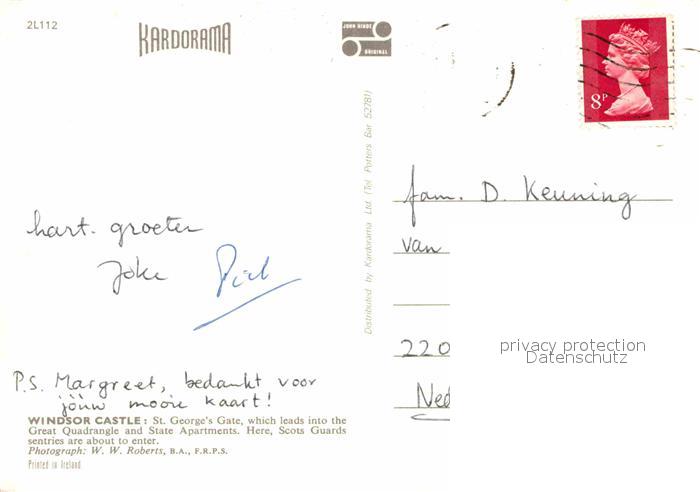 2L112
KARDORAMA
JOHN HINDE
ORIGINAL
8P
Distributed by Kardorama Ltd (Tel Potters Bar 52781)
fam. D. Keuning
van
220
Ned
privacy protection
Datenschutz
hart. groeten
Joke Piet
P.S. Margreet, bedankt voor
jóúw mooie kaart!
WINDSOR CASTLE: St. George's Gate, which leads into the
Great Quadrangle and State Apartments. Here, Scots Guards
sentries are about to enter.
Photograph: W. W. Roberts, B.A., F.R.P.S.
Printed in Ireland